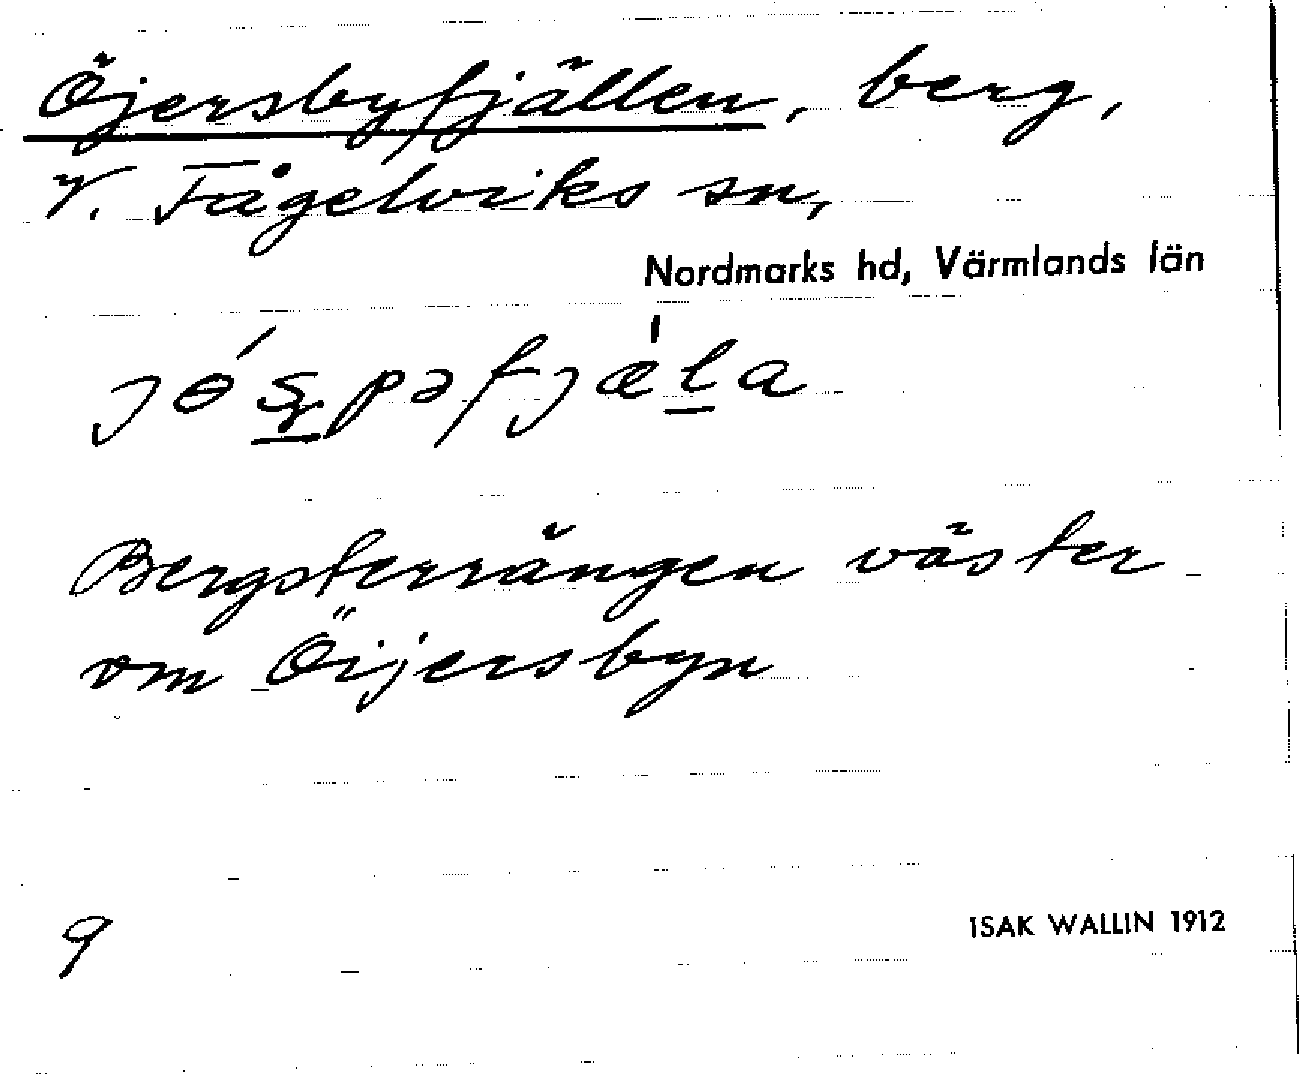 Öjersbyfjällen, berg,
V. Fågelviks sn,
Nordmarks hd, Värmlands län
Bergsterrängen väster
om Öijersbyn
9
ISAK WALLIN 1912